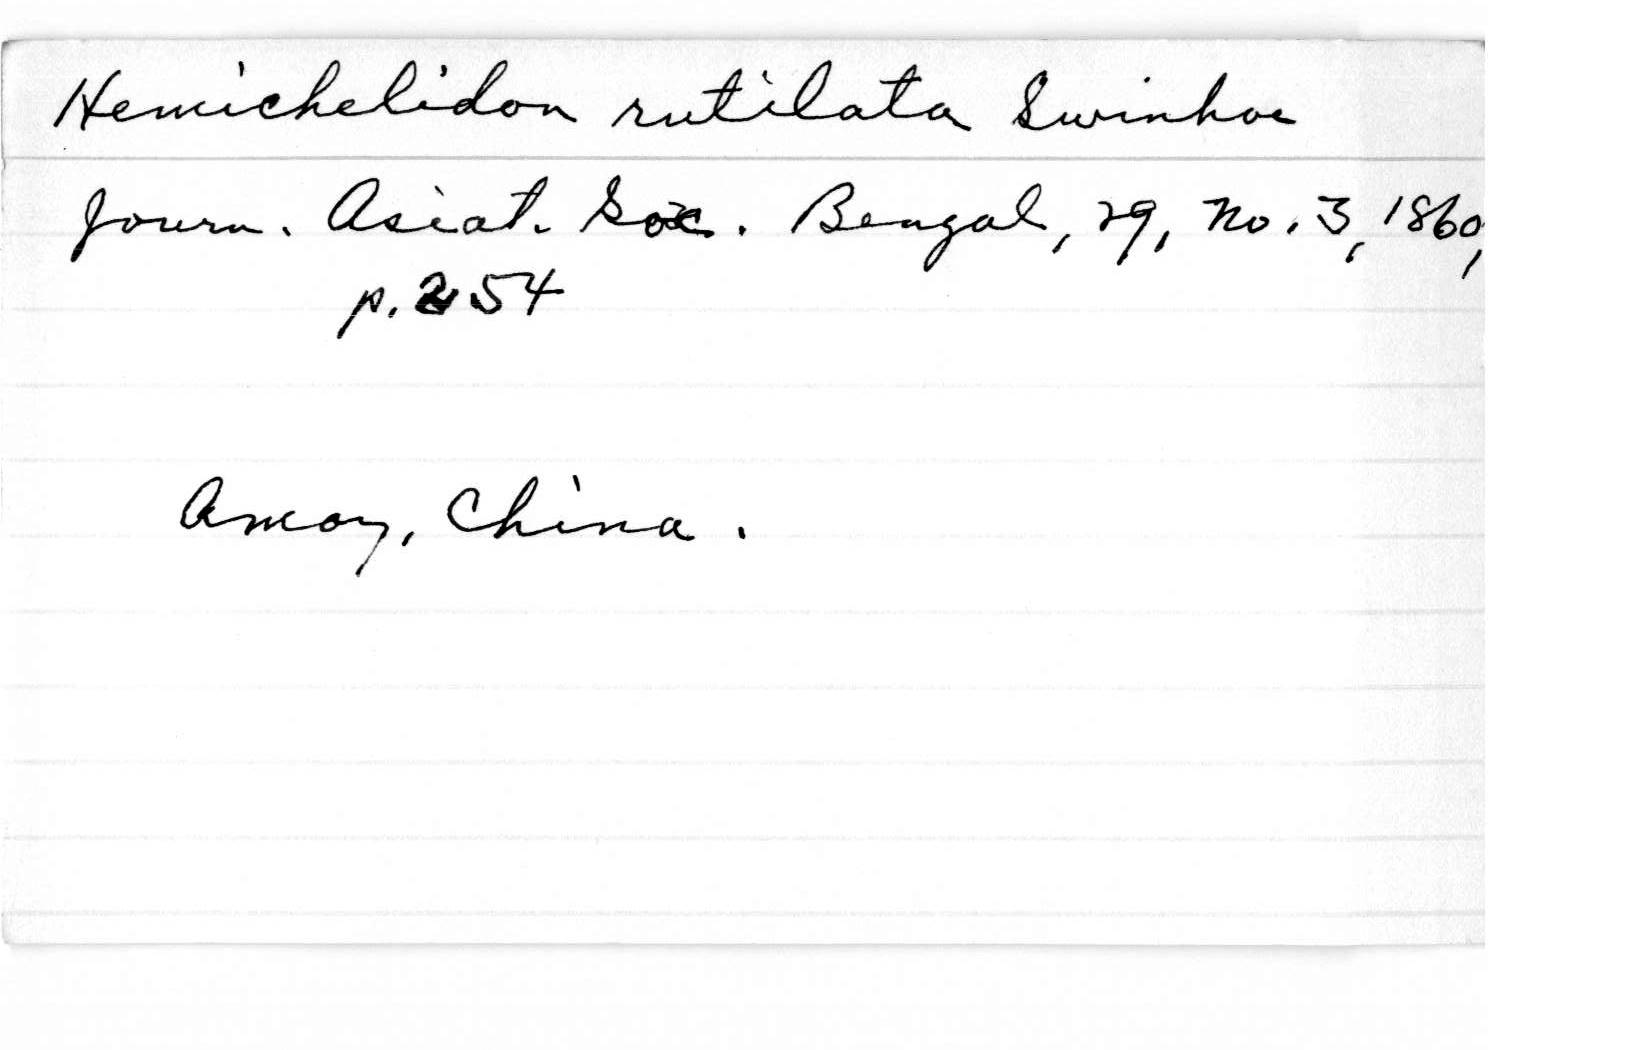 Hemichelidon rutilata Swinhoe
Journ. Asiat. Soc. Bengal, 29, no. 3, 1860,
p. 254
Amoy, China.